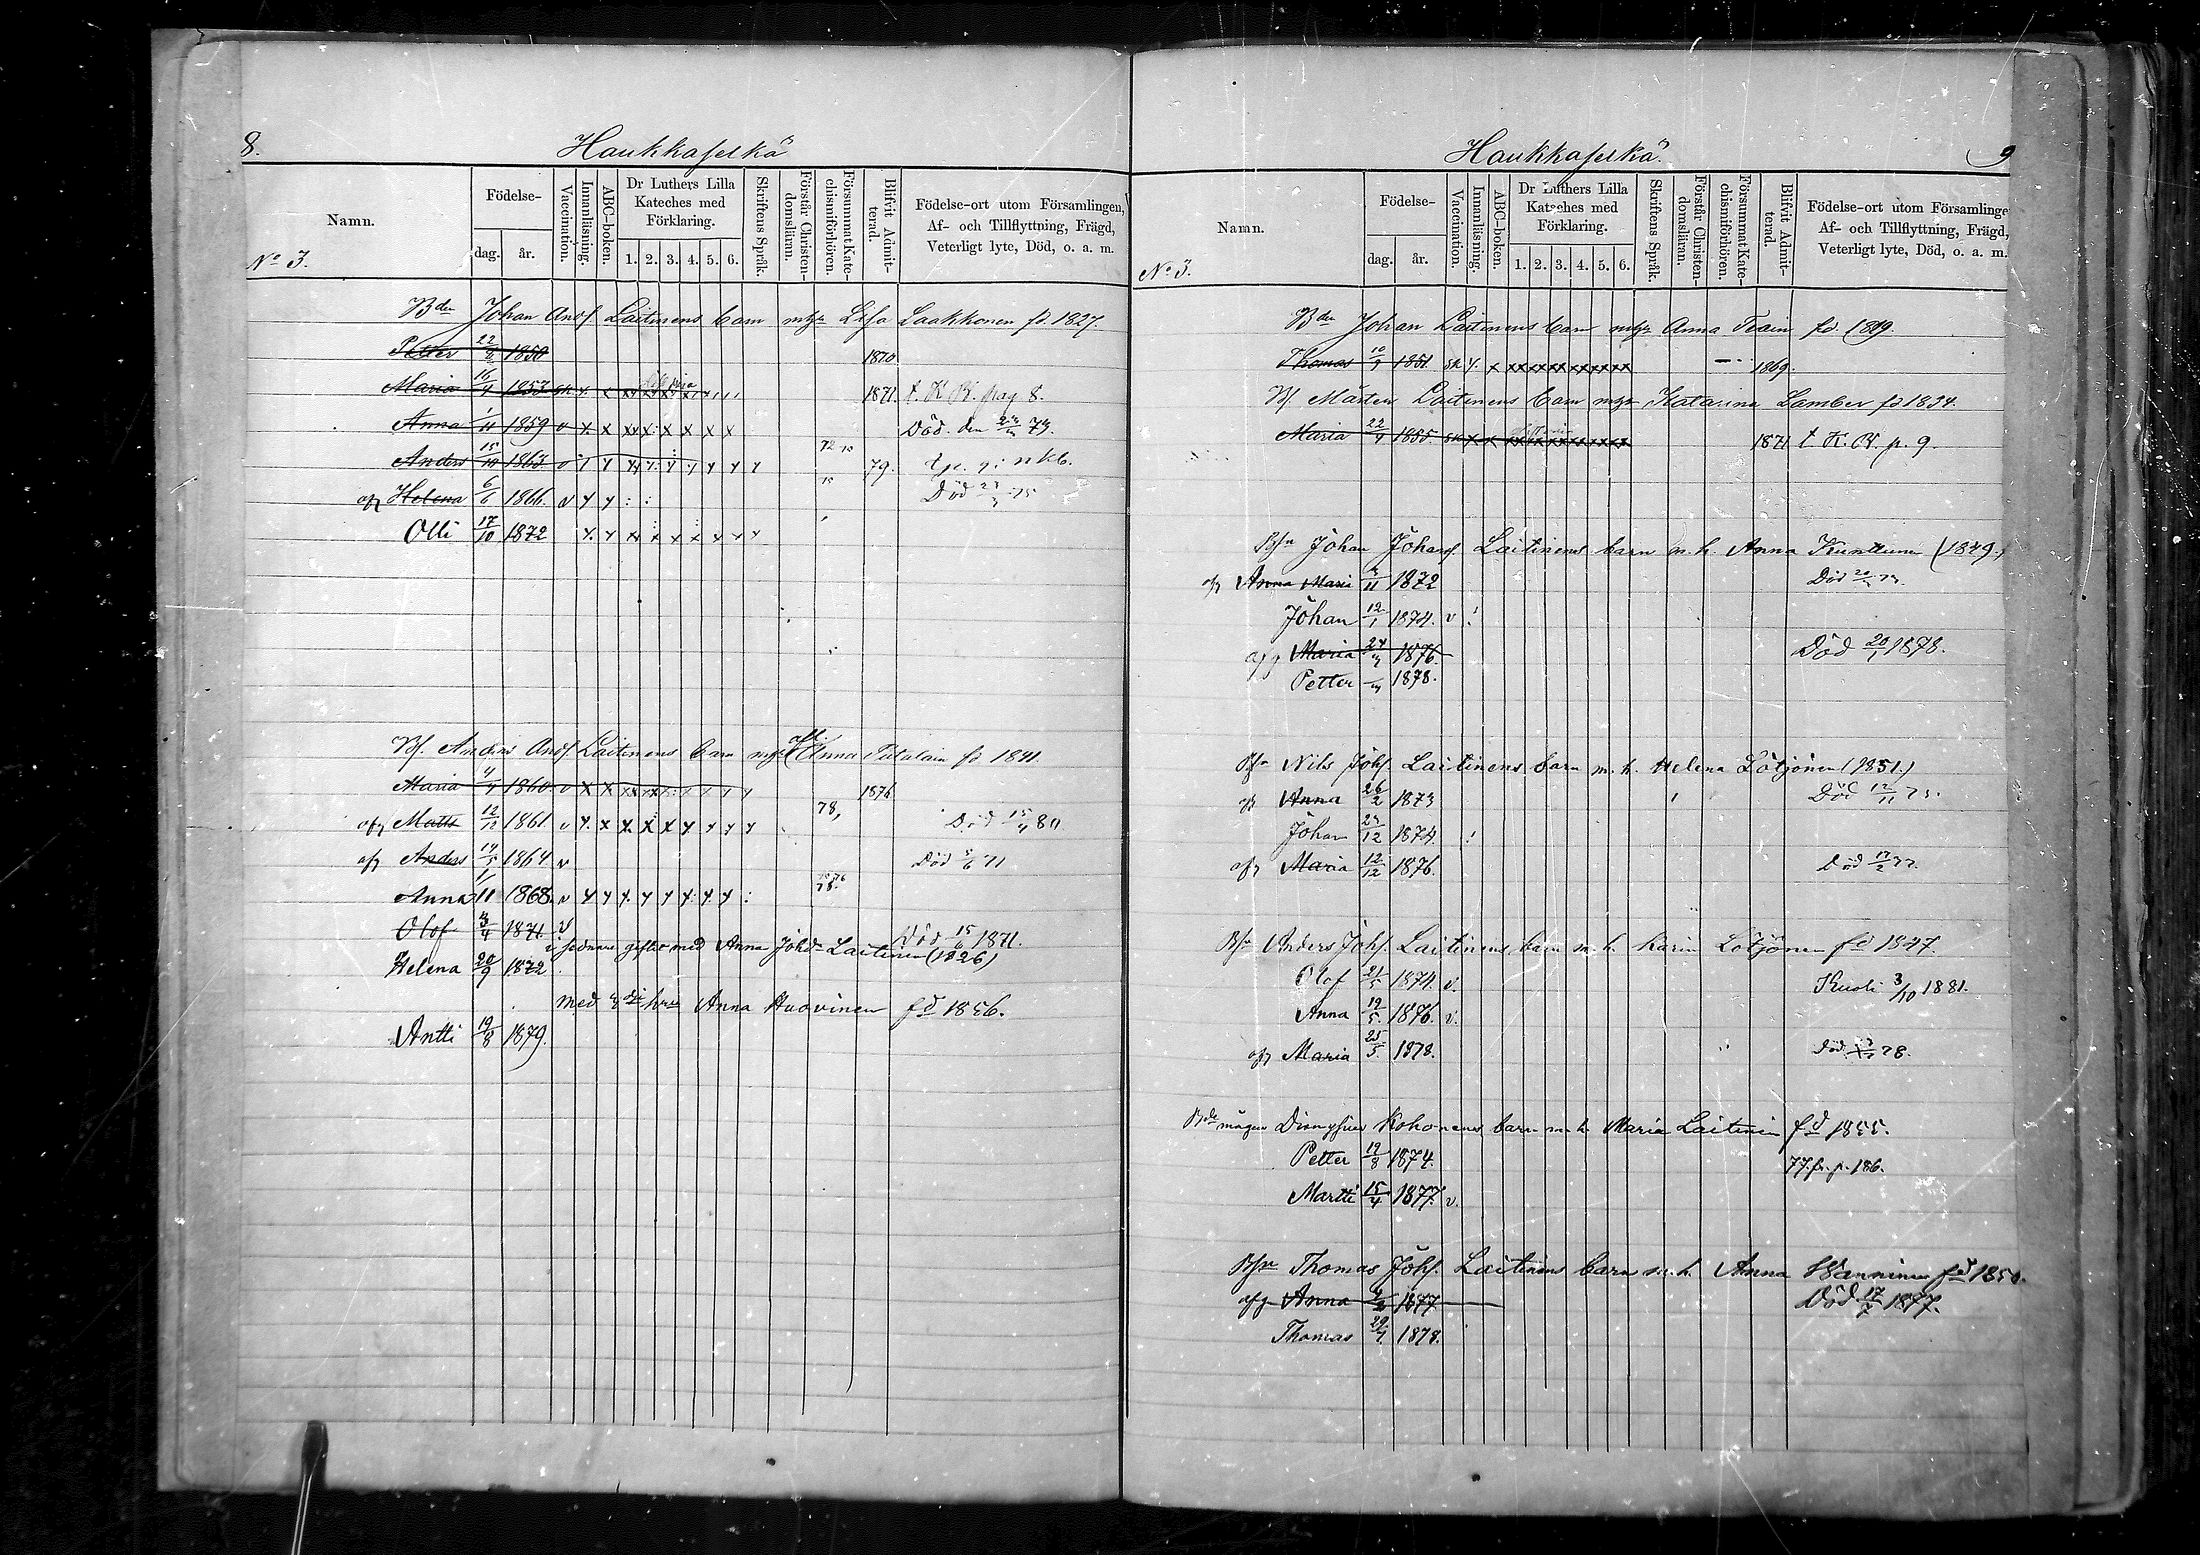 8.
Haukkaselkä
Namn.
Födelse-
dag.
år.
Vaccination.
Innanläsning.
ABC-boken.
Dr Luthers Lilla
Kateches med
Förklaring.
1. 2. 3. 4. 5. 6.
Skriftens Språk.
Förstår Christen-
domsläran.
Försummat Kate-
chismiförhören.
Blifvit Admit-
terad.
Födelse-ort utom Församlingen,
Af- och Tillflyttning, Frägd,
Veterligt lyte, Död, o. a. m.
No 3.
Bden Johan Andf Laitinens barn Lisa Laakkonen fd 1827.
Petter 22/8 1850 1870
Maria 16/4 1853 1871. t. K B. pag 8.
Anna 1/11 1859 v Död. den 73.
Anders 15/10 1863 v 72 79.
afg Helena 6/6 1866. v Död 75
Olli 17/10 1872
Bf. Anders Andf Laitinens barn Anna fd 1841.
Maria 4/4 1860 v 1876
afg Matts 12/12 1861. v 78, Död 15/4 80
afg Anders 14/5 1864 v Död 5/6 71
Anna 1/11 1868. v
Olof 3/4 1871 v Död 15/6 1871.
sednare giftet med Anna Johdr Laitinen (1826)
Helena 20/9 1872.
med hru Anna Huovinen fd 1856.
Antti 19/8 1879.
Haukkaselkä.
9
Namn.
Födelse-
dag.
år.
Vaccination.
Innanläsning.
ABC-boken.
Dr Luthers Lilla
Kateches med
Förklaring.
1. 2. 3. 4. 5. 6.
Skriftens Språk.
Förstår Christen-
domsläran.
Försummat Kate-
chismiförhören.
Blifvit Admit-
terad.
Födelse-ort utom Församlinge
Af- och Tillflyttning, Frägd,
Veterligt lyte, Död, o. a. m.
No 3.
Bden Johan Laitinens barn Anna Train fd. 1819.
Thomas 10/9 1851. 1869.
Bf. Mårten Laitinens barn Katarina Lamber fd 1834.
Maria 22/4 1855. 1871 t K. B. p. 9.
Bfn Johan Johanf Laitinens barn m. h. Anna Kunttunen (1849.)
afg Anna Maria 1872 Död 73.
Johan 12/1 1874. v
afg Maria 1876. Död 20/1 1878.
Petter 1878.
Bfn Nils Johf. Laitinens barn m. h. Helena Lötjönen (1851.)
afg Anna 26/2 1873 Död 12/11 73.
Johan 1874.
afg Maria 12/12 1876. Död 17/2 77.
Bfn Anders Johf. Laitinens barn m. h. Karin Lötjönen fd 1847.
Olof 21/5 1874. v. Kuoli 3/10 1881.
Anna 19/5. 1876. v.
afg Maria 25/5. 1878. Död 78.
Bde mågen Dionysius Kohonens barn m. h. Maria Laitinen fd 1855.
Petter 19/8 1874. 77. fr. p. 186.
Martti 15/4 1877. v.
Bfn Thomas Johf. Laitinens barn m. h. Anna Wanninen fd 1850.
afg Anna 1877 Död 17/7 1877.
Thomas 29/7 1878.